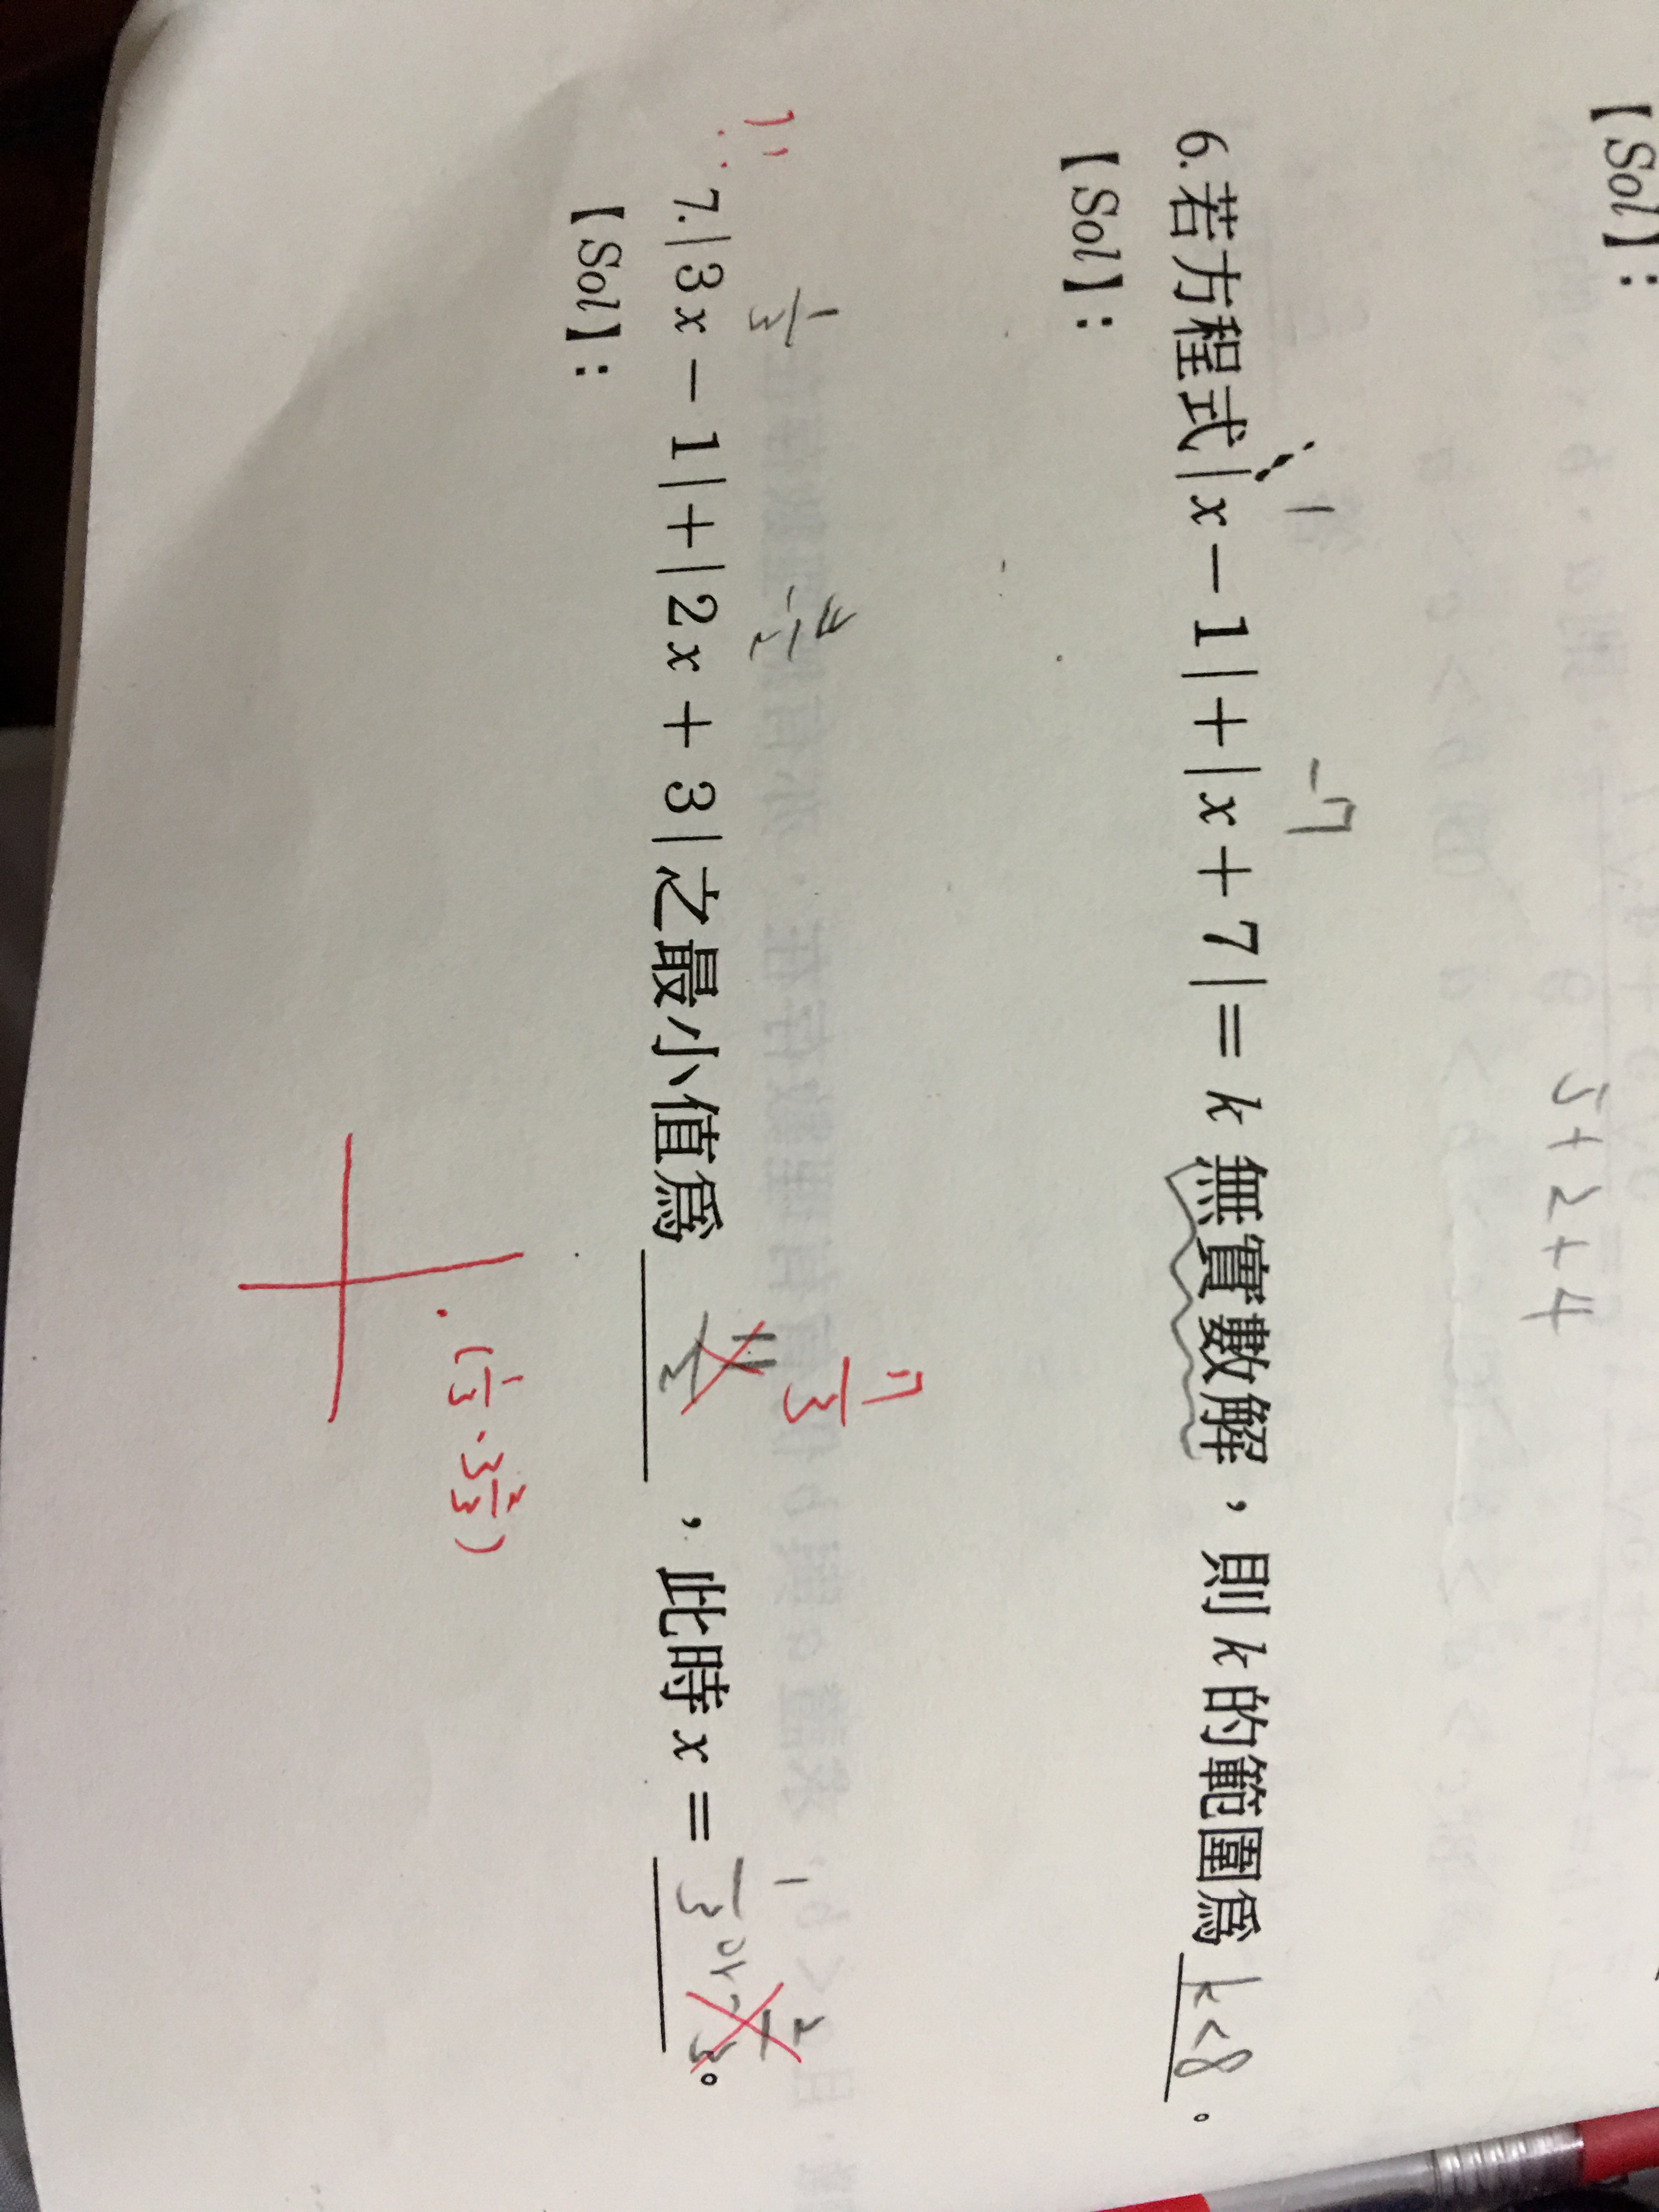 【Sol】:
5+2+4
1 -7
6.若方程式|x－1|+|x+7|=k 無實數解，則k的範圍爲 k<8 。
【Sol】:
1/3 -3/2 11/3
7.|3x－1|+|2x+3|之最小值爲 11/2 ，此時x= 1/3 or -2/3 。
【Sol】:
(1/3, 3 2/3)